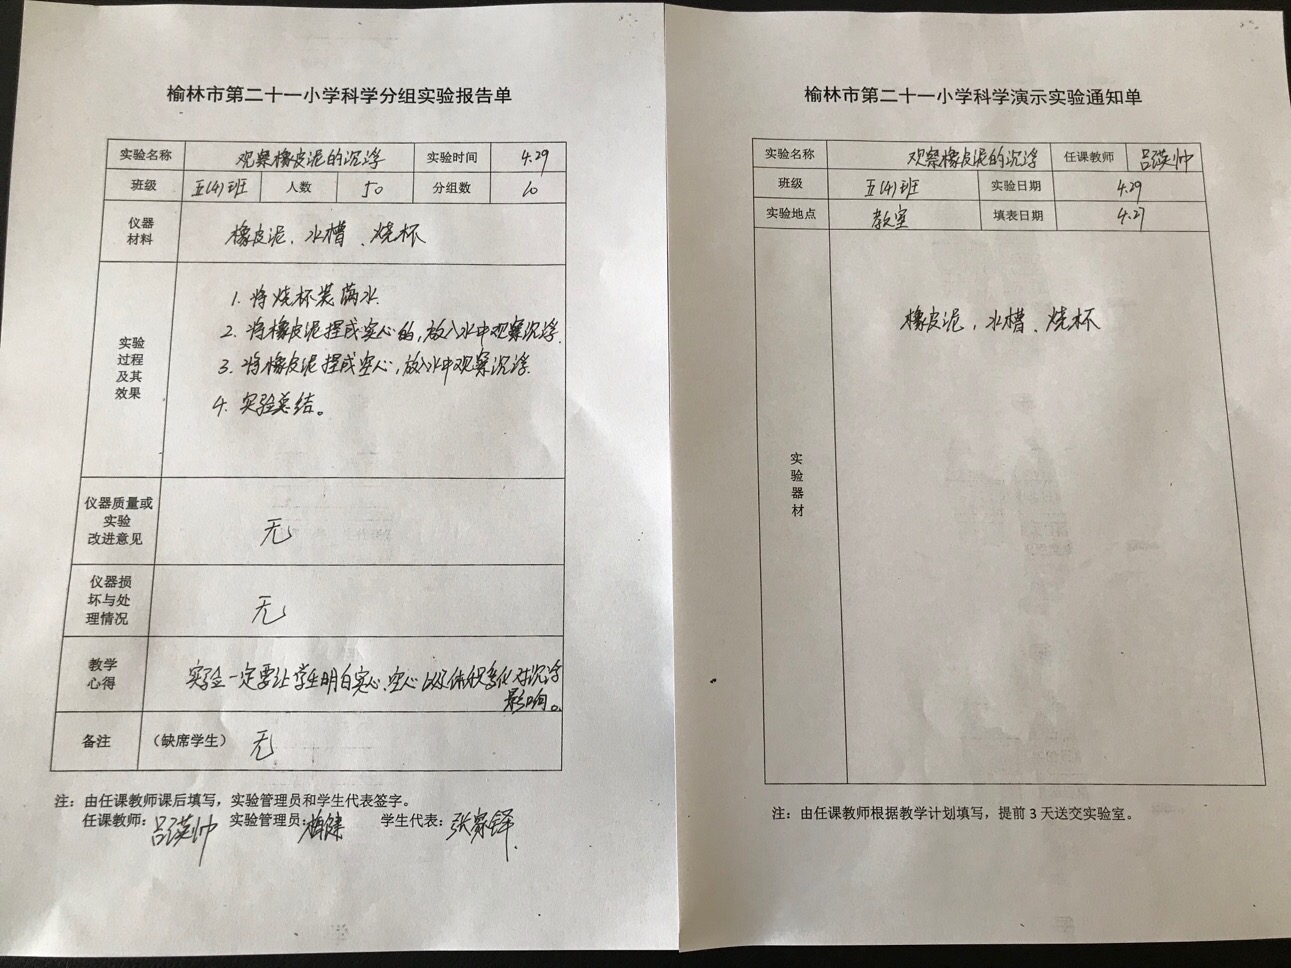 榆林市第二十一小学科学分组实验报告单
实验名称 观察橡皮泥的沉浮 实验时间 4.29
班级 五(4)班 人数 50 分组数 10
仪器
材料
橡皮泥、水槽、烧杯
实验
过程
及其
效果
1. 将烧杯装满水.
2. 将橡皮泥捏成实心的,放入水中观察沉浮.
3. 将橡皮泥捏成空心,放入水中观察沉浮.
4. 实验总结。
仪器质量或
实验
改进意见
无
仪器损
坏与处
理情况
无
教学
心得
实验一定要让学生明白实心、空心以及体积变化对沉浮
影响。
备注 (缺席学生) 无
注：由任课教师课后填写，实验管理员和学生代表签字。
任课教师： 实验管理员： 学生代表：张家铎
榆林市第二十一小学科学演示实验通知单
实验名称 观察橡皮泥的沉浮 任课教师
班级 五(4)班 实验日期 4.29
实验地点 教室 填表日期 4.27
实
验
器
材
橡皮泥,水槽、烧杯
注：由任课教师根据教学计划填写，提前 3 天送交实验室。